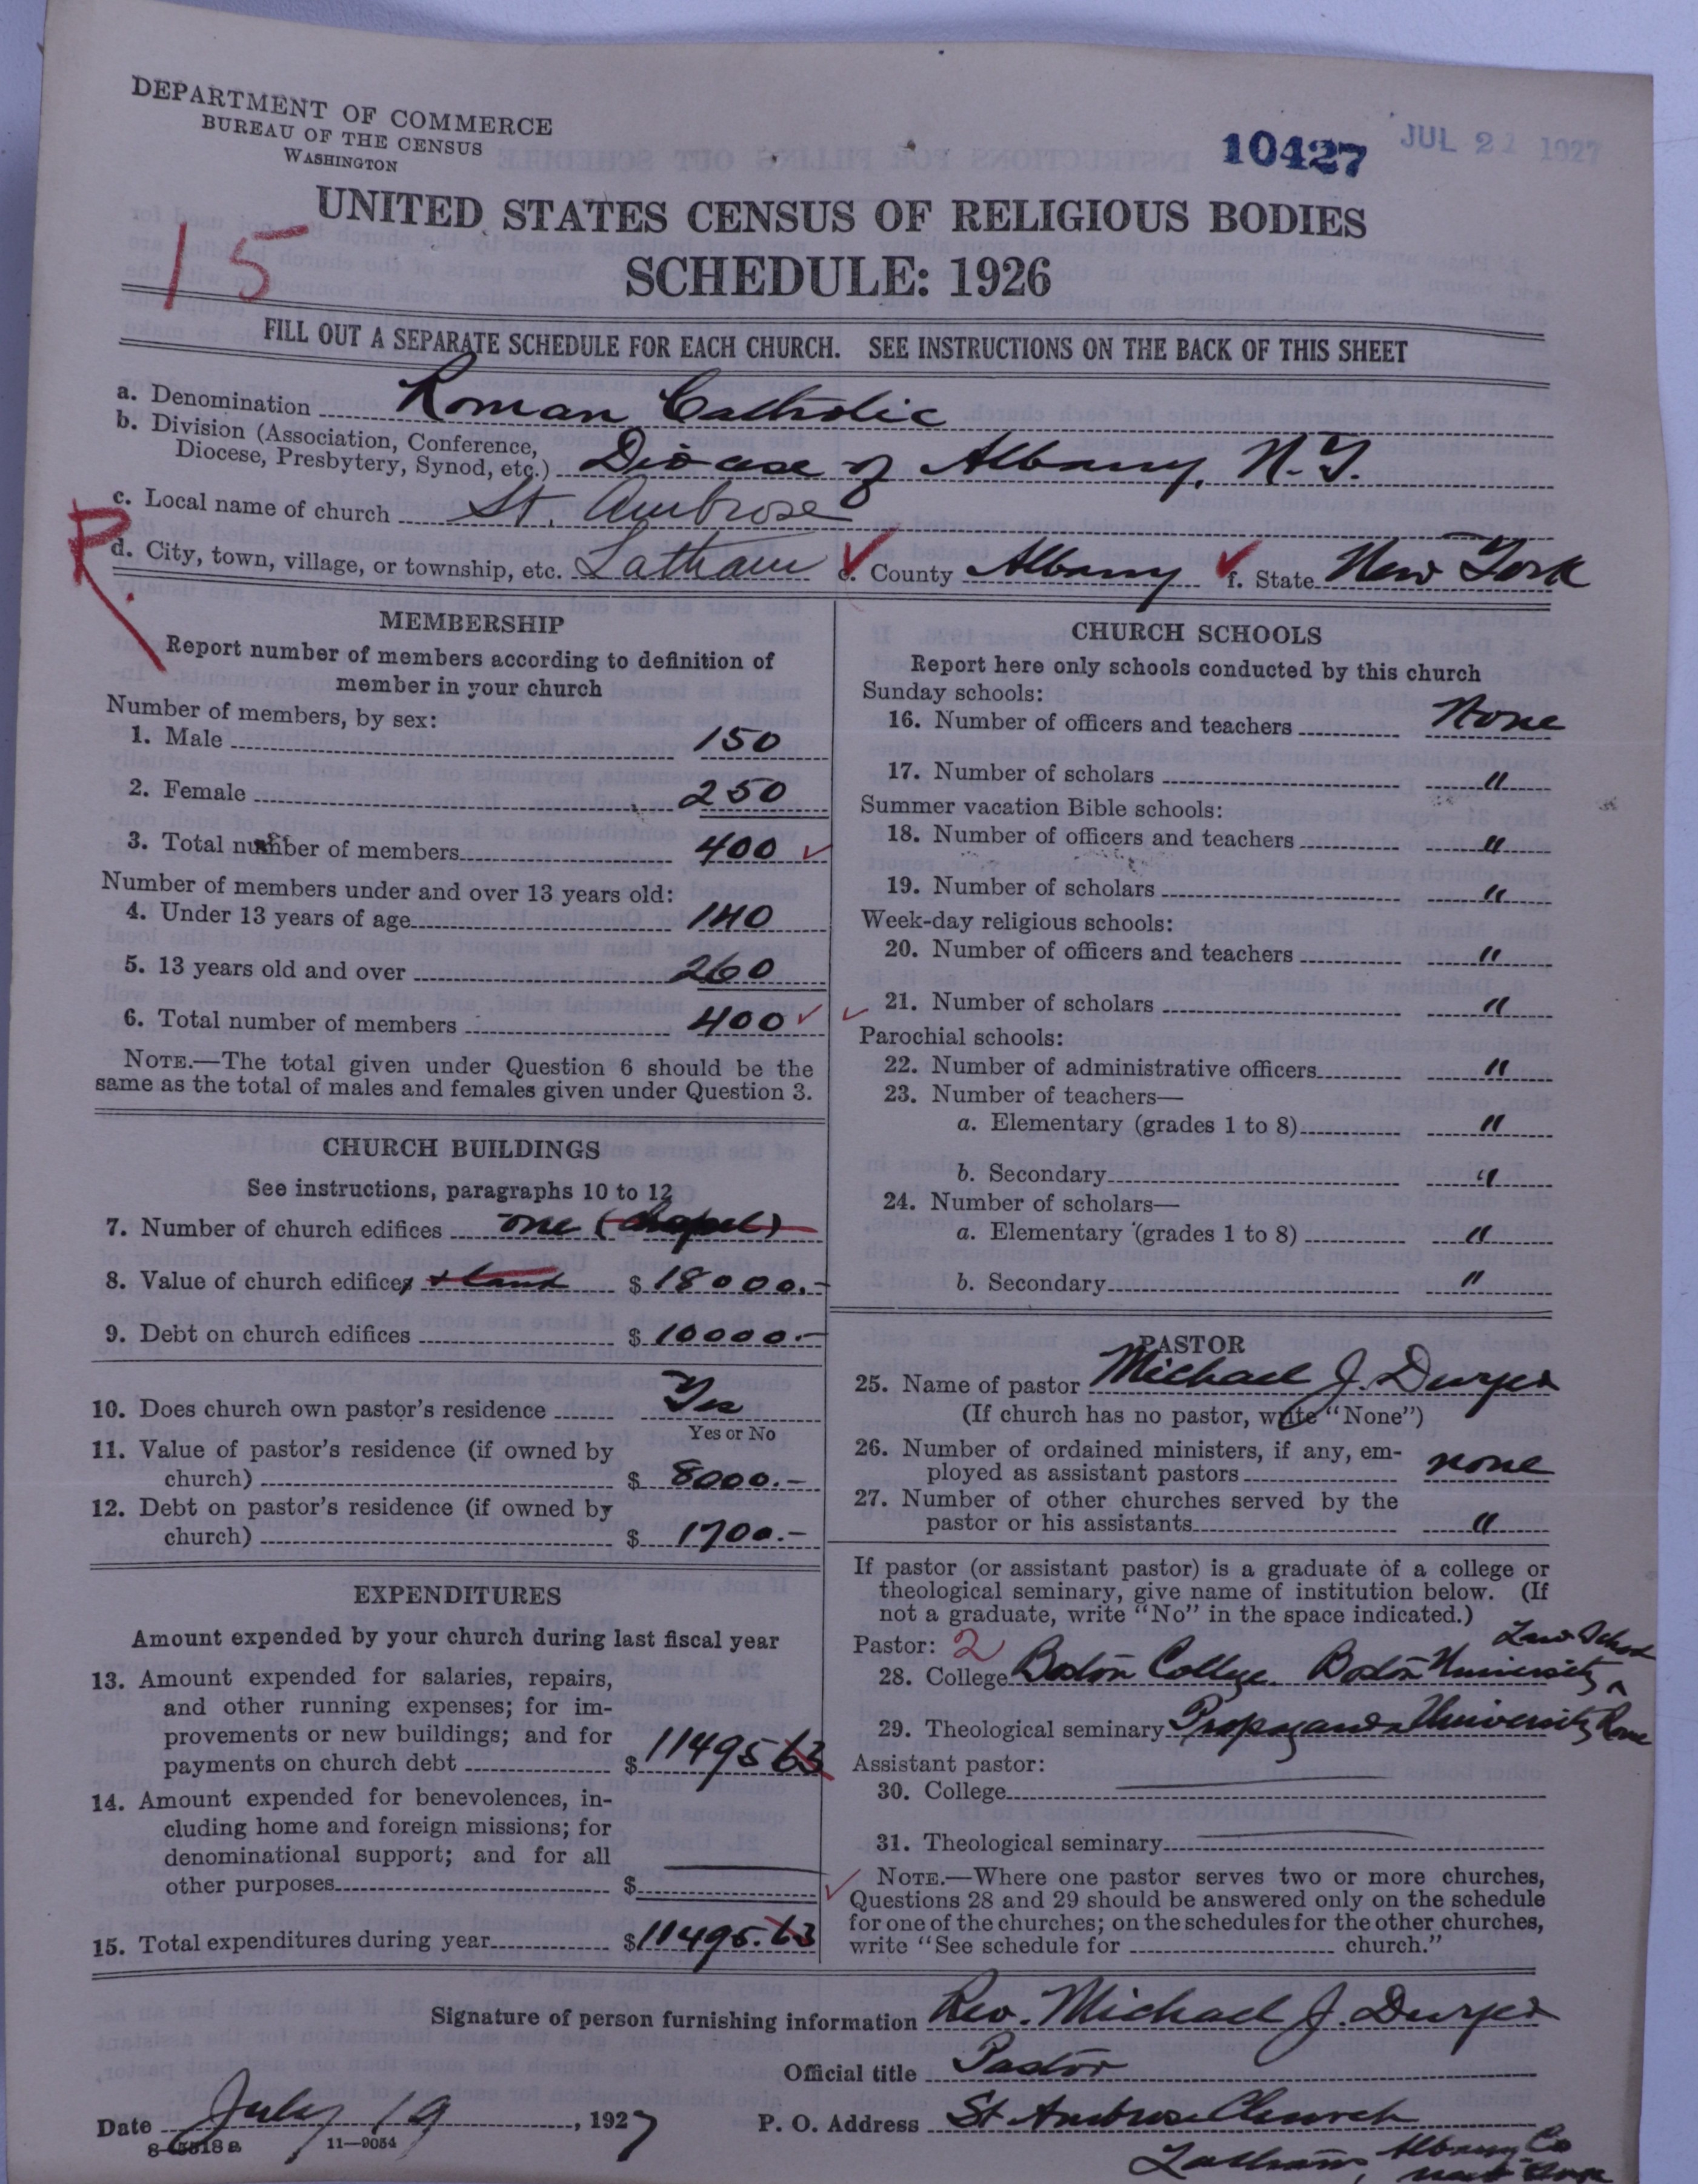 DEPARTMENT OF COMMERCE
BUREAU OF THE CENSUS
WASHINGTON
10427 JUL 21 1927
UNITED STATES CENSUS OF RELIGIOUS BODIES
SCHEDULE: 1926
15
FILL OUT A SEPARATE SCHEDULE FOR EACH CHURCH. SEE INSTRUCTIONS ON THE BACK OF THIS SHEET
a. Denomination Roman Catholic
b. Division (Association, Conference,
Diocese, Presbytery, Synod, etc.) Diocese of Albany, N.Y.
c. Local name of church St. Ambrose
R.
d. City, town, village, or township, etc. Latham e. County Albany f. State New York
MEMBERSHIP
Report number of members according to definition of
member in your church
Number of members, by sex:
1. Male 150
2. Female 250
3. Total number of members 400
Number of members under and over 13 years old:
4. Under 13 years of age 140
5. 13 years old and over 260
6. Total number of members 400
NOTE.—The total given under Question 6 should be the
same as the total of males and females given under Question 3.
CHURCH BUILDINGS
See instructions, paragraphs 10 to 12
7. Number of church edifices one (chapel)
8. Value of church edifices + land $ 18000.-
9. Debt on church edifices $ 10000.-
10. Does church own pastor's residence Yes
Yes or No
11. Value of pastor's residence (if owned by
church) $ 8000.-
12. Debt on pastor's residence (if owned by
church) $ 1700.-
EXPENDITURES
Amount expended by your church during last fiscal year
13. Amount expended for salaries, repairs,
and other running expenses; for im-
provements or new buildings; and for
payments on church debt $ 11495 63
14. Amount expended for benevolences, in-
cluding home and foreign missions; for
denominational support; and for all
other purposes $
15. Total expenditures during year $ 11495.63
CHURCH SCHOOLS
Report here only schools conducted by this church
Sunday schools:
16. Number of officers and teachers None
17. Number of scholars "
Summer vacation Bible schools:
18. Number of officers and teachers "
19. Number of scholars "
Week-day religious schools:
20. Number of officers and teachers "
21. Number of scholars "
Parochial schools:
22. Number of administrative officers "
23. Number of teachers—
a. Elementary (grades 1 to 8) "
b. Secondary "
24. Number of scholars—
a. Elementary (grades 1 to 8) "
b. Secondary "
PASTOR
25. Name of pastor Michael J.
(If church has no pastor, write "None")
26. Number of ordained ministers, if any, em-
ployed as assistant pastors none
27. Number of other churches served by the
pastor or his assistants "
If pastor (or assistant pastor) is a graduate of a college or
theological seminary, give name of institution below. (If
not a graduate, write "No" in the space indicated.)
Pastor: 2 Law School
28. College Boston College. Boston University
29. Theological seminary Propaganda University Rome
Assistant pastor:
30. College
31. Theological seminary
NOTE.—Where one pastor serves two or more churches,
Questions 28 and 29 should be answered only on the schedule
for one of the churches; on the schedules for the other churches,
write "See schedule for church."
Signature of person furnishing information Rev. Michael J.
Official title Pastor
Date July 19, 1927 P. O. Address St Ambrose Church
8-5518a 11—9054 Latham, Albany Co
New York